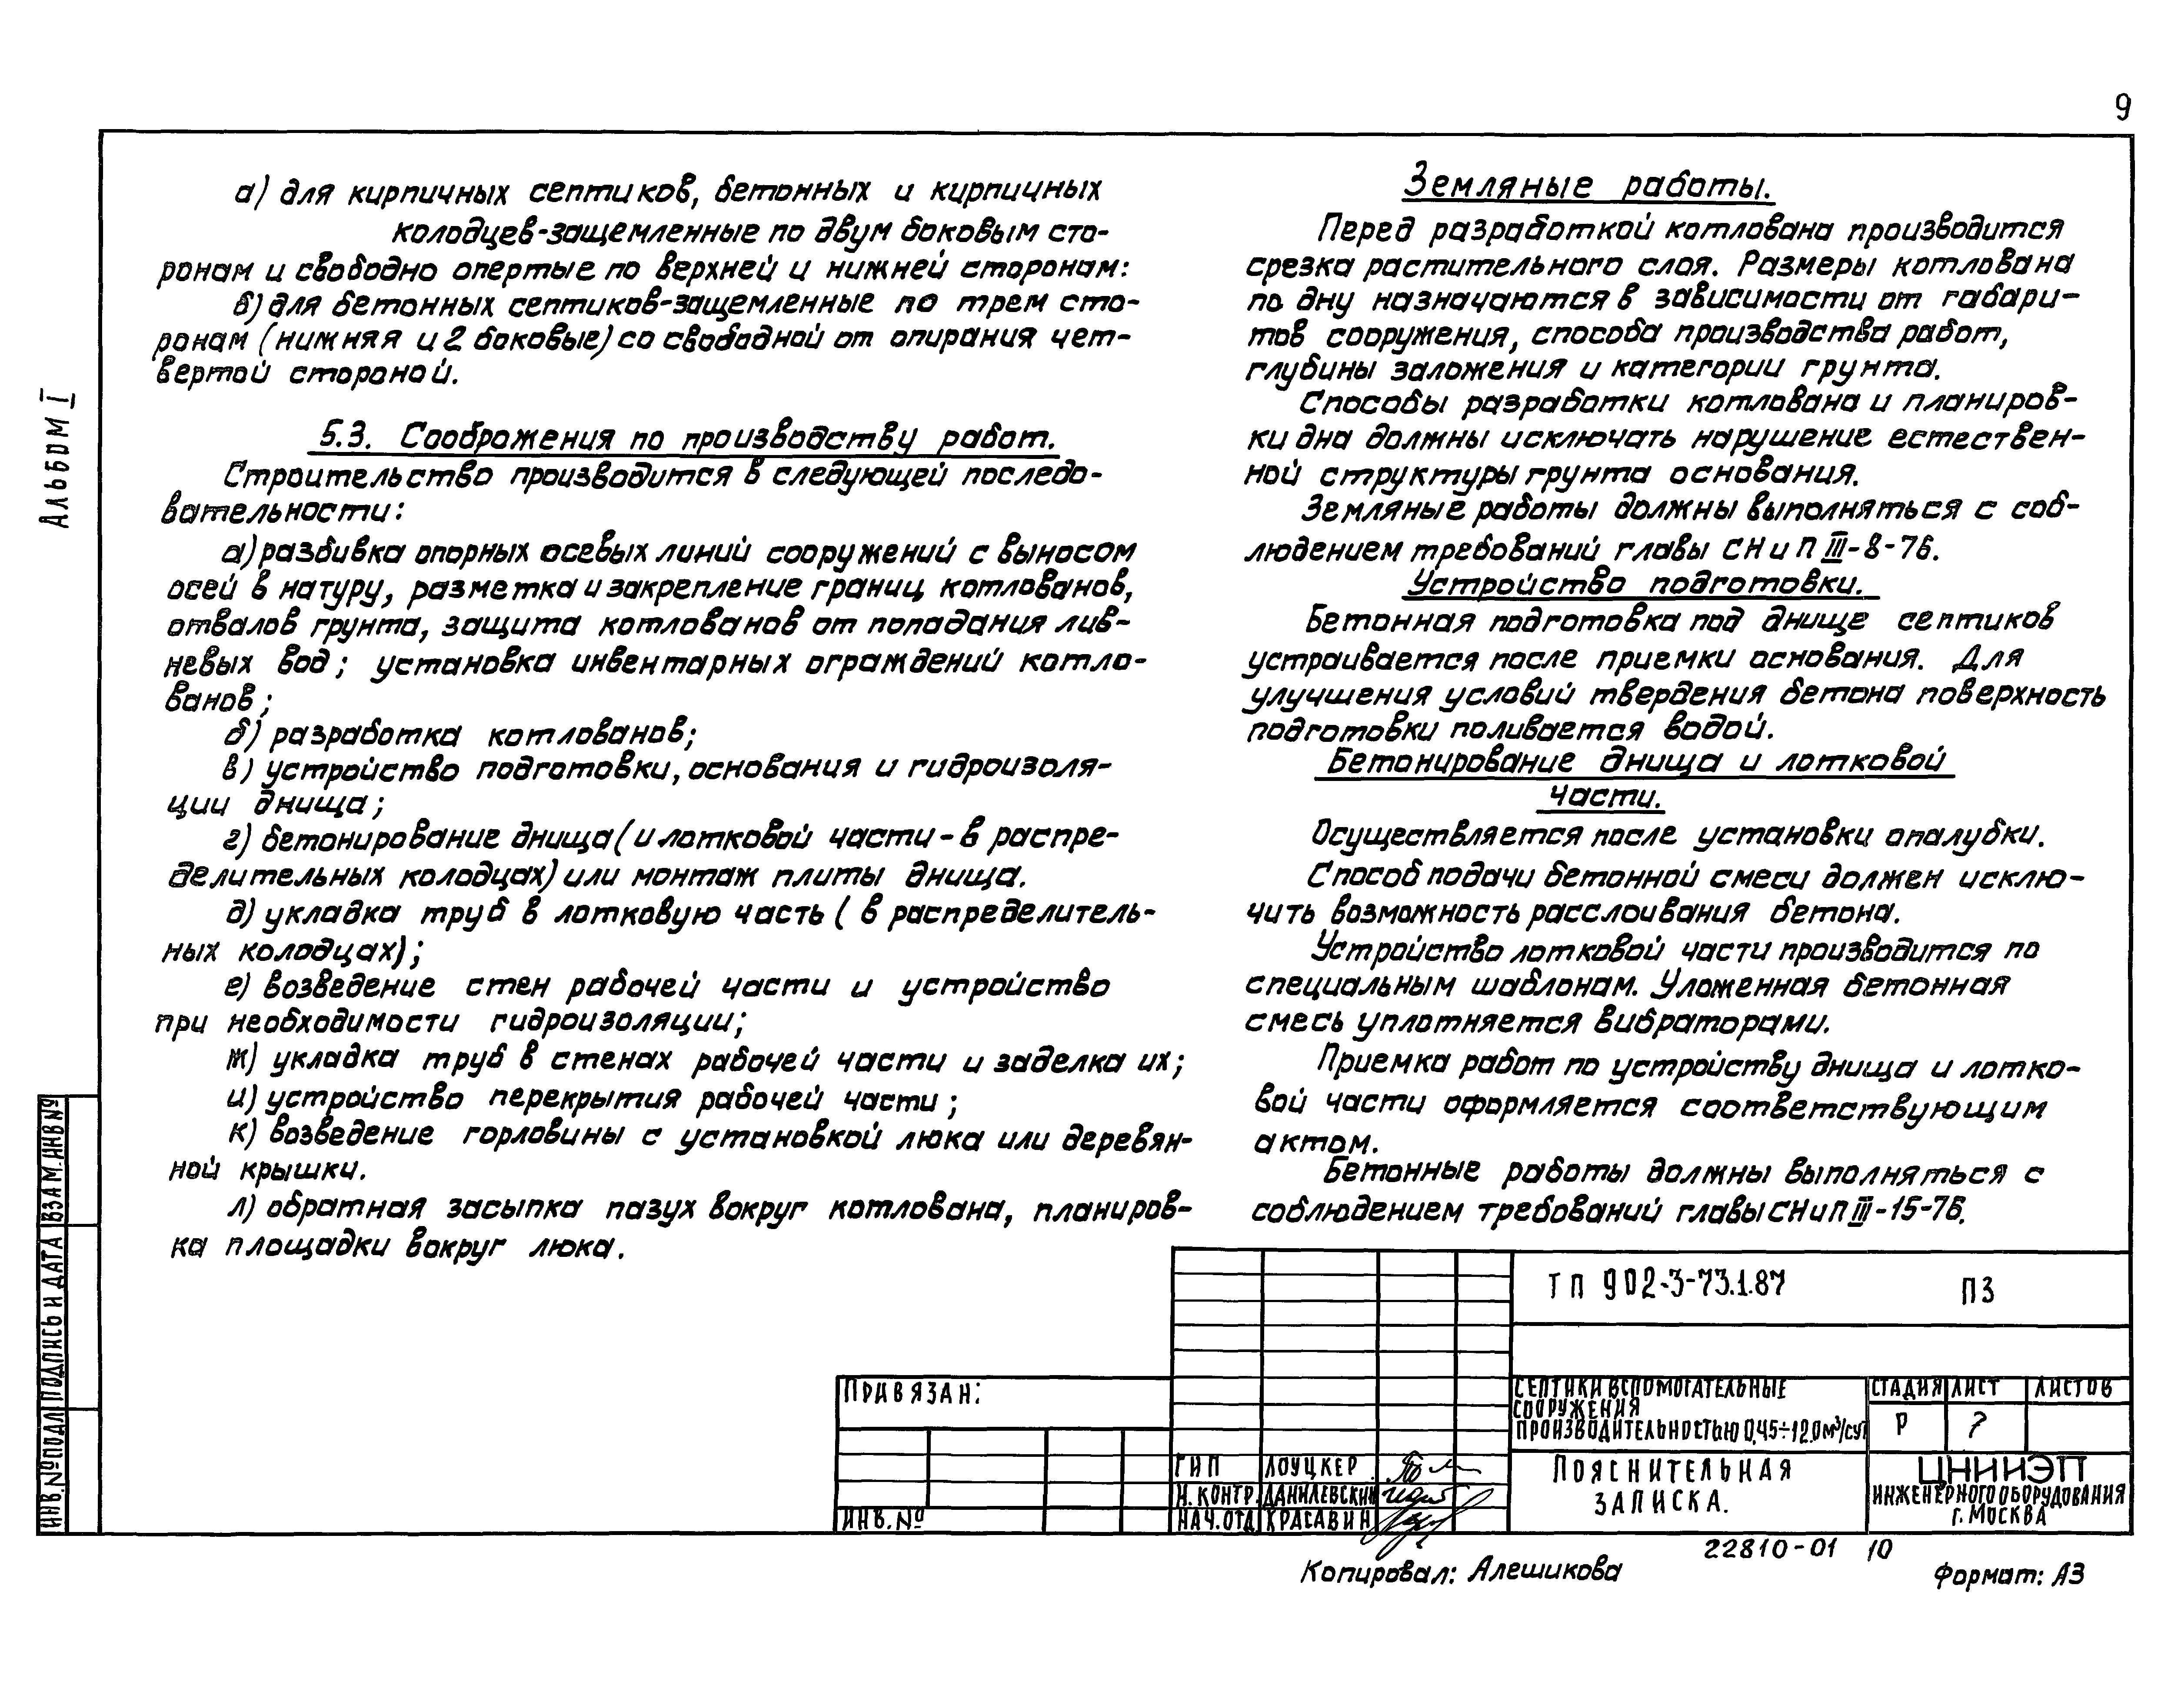 9
Альбом I
а) для кирпичных септиков, бетонных и кирпичных
колодцев-защемленные по двум боковым сто-
ронам и свободно опертые по верхней и нижней сторонам:
б) для бетонных септиков-защемленные по трем сто-
ронам (нижняя и 2 боковые) со свободной от опирания чет-
вертой стороной.
5.3. Соображения по производству работ.
Строительство производится в следующей последо-
вательности:
а) разбивка опорных осевых линий сооружений с выносом
осей в натуру, разметка и закрепление границ котлованов,
отвалов грунта, защита котлованов от попадания лив-
невых вод; установка инвентарных ограждений котло-
ванов;
б) разработка котлованов;
в) устройство подготовки, основания и гидроизоля-
ции днища;
г) бетонирование днища (и лотковой части - в распре-
делительных колодцах) или монтаж плиты днища.
д) укладка труб в лотковую часть ( в распределитель-
ных колодцах);
е) возведение стен рабочей части и устройство
при необходимости гидроизоляции;
ж) укладка труб в стенах рабочей части и заделка их;
и) устройство перекрытия рабочей части;
к) возведение горловины с установкой люка или деревян-
ной крышки.
л) обратная засыпка пазух вокруг котлована, планиров-
ка площадки вокруг люка.
Земляные работы.
Перед разработкой котлована производится
срезка растительного слоя. Размеры котлована
по дну назначаются в зависимости от габари-
тов сооружения, способа производства работ,
глубины заложения и категории грунта.
Способы разработки котлована и планиров-
ки дна должны исключать нарушение естествен-
ной структуры грунта основания.
Земляные работы должны выполняться с соб-
людением требований главы СНиП III-8-76.
Устройство подготовки.
Бетонная подготовка под днище септиков
устраивается после приемки основания. Для
улучшения условий твердения бетона поверхность
подготовки поливается водой.
Бетонирование днища и лотковой
части.
Осуществляется после установки опалубки.
Способ подачи бетонной смеси должен исклю-
чить возможность расслоивания бетона.
Устройство лотковой части производится по
специальным шаблонам. Уложенная бетонная
смесь уплотняется вибраторами.
Приемка работ по устройству днища и лотко-
вой части оформляется соответствующим
актом.
Бетонные работы должны выполняться с
соблюдением требований главы СНиП III-15-76.
ТП 902-3-73.1.87 ПЗ
Привязан:
Септики вспомогательные
сооружения
производительностью 0,45÷12.0м³/сут
Стадия Лист Листов
Р 7
Пояснительная
записка.
ЦНИИЭП
инженерного оборудования
г. Москва
ГИП Лоуцкер
Н. контр. Данилевский
Нач. отд. Красавин
Инв. №
Взам. инв №
Подпись и дата
Инв. № подл
22810-01 10
Копировал: Алешикова
Формат: А3